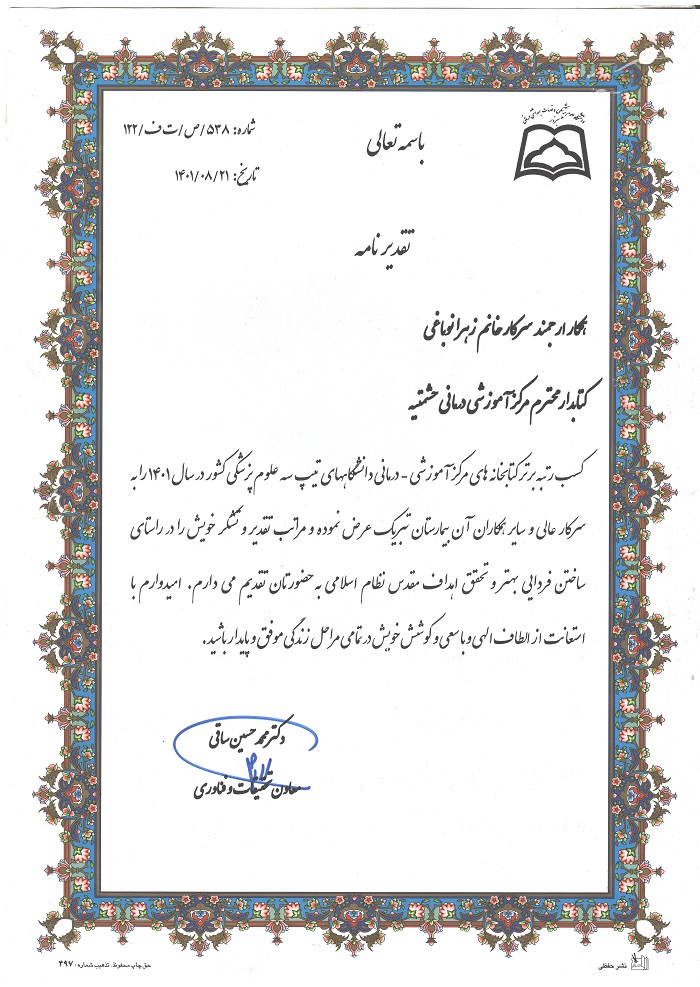 باسمه تعالی
شماره: ۵۳۸/ص/ت ف/۱۲۲
تاریخ: ۱۴۰۱/۰۸/۲۱
تقدیر نامه
همکار ارجمند سرکار خانم زهرا نوباغی
کتابدار محترم مرکز آموزشی درمانی حشمتیه
کسب رتبه برتر کتابخانه های مرکز آموزشی - درمانی دانشگاههای تیپ سه علوم پزشکی کشور در سال ۱۴۰۱ را به
سرکار عالی و سایر همکاران آن بیمارستان تبریک عرض نموده و مراتب تقدیر و تشکر خویش را در راستای
ساختن فردایی بهتر و تحقق اهداف مقدس نظام اسلامی به حضورتان تقدیم می دارم. امیدوارم با
استعانت از الطاف الهی و با سعی و کوشش خویش در تمامی مراحل زندگی موفق و پایدار باشید.
دکتر محمد حسین ساقی
معاون تحقیقات و فناوری
نشر حافظی
حق چاپ محفوظ. تذهیب شماره: ۳۹۷